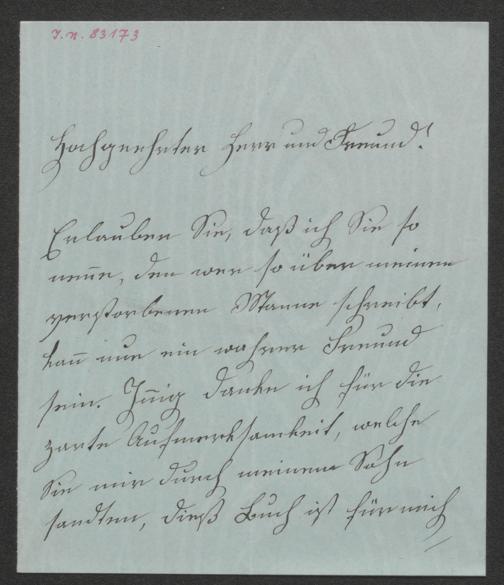 I.N. 83173
Hochgeehrter Herr und Freund!
Erlauben Sie, daß ich Sie so
neñe, den wer so über meinen
verstorbenen Manne schreibt,
kañ nur ein wahrer Freund
sein. Iñig danke ich für die
zarte Aufmerksamkeit, welche
Sie mir durch meinem Sohn
sandten, dieß Buch ist für mich